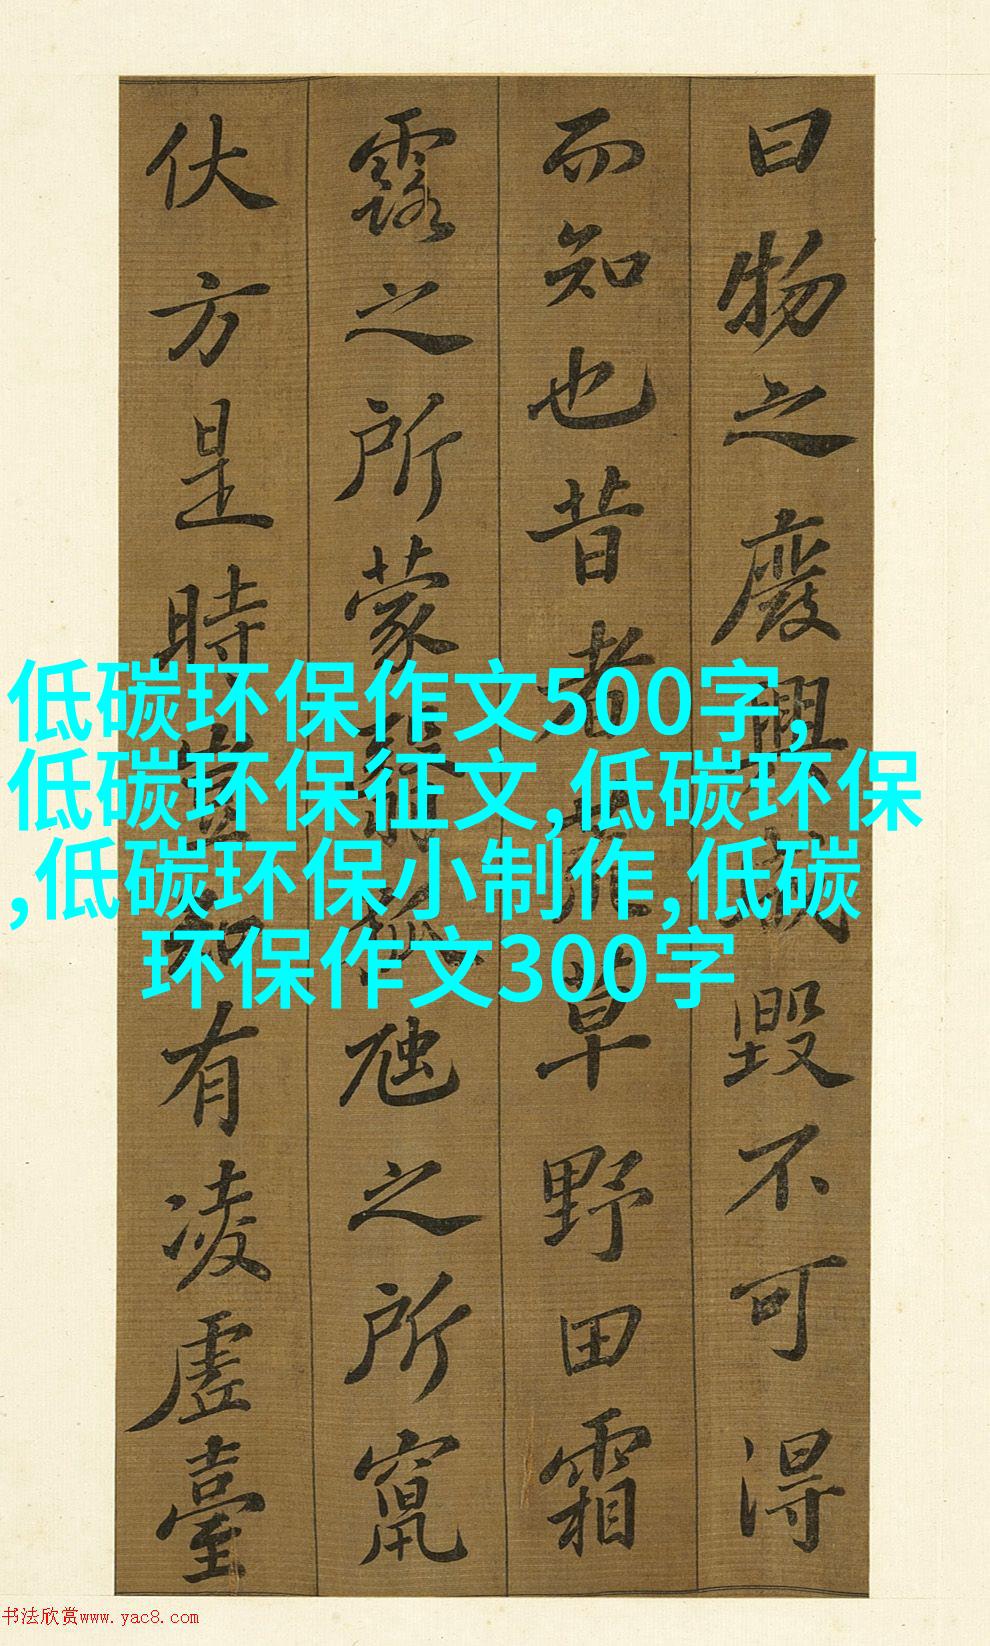 曰物之廢興成毀不可得
而知也昔者荒草野田霜
露之所蒙翳狐虺之所竄
伏方是時豈知有凌虛臺
低碳环保作文500字,
低碳环保征文,低碳环保
,低碳环保小制作,低碳
环保作文300字
书法欣赏www.yac8.com